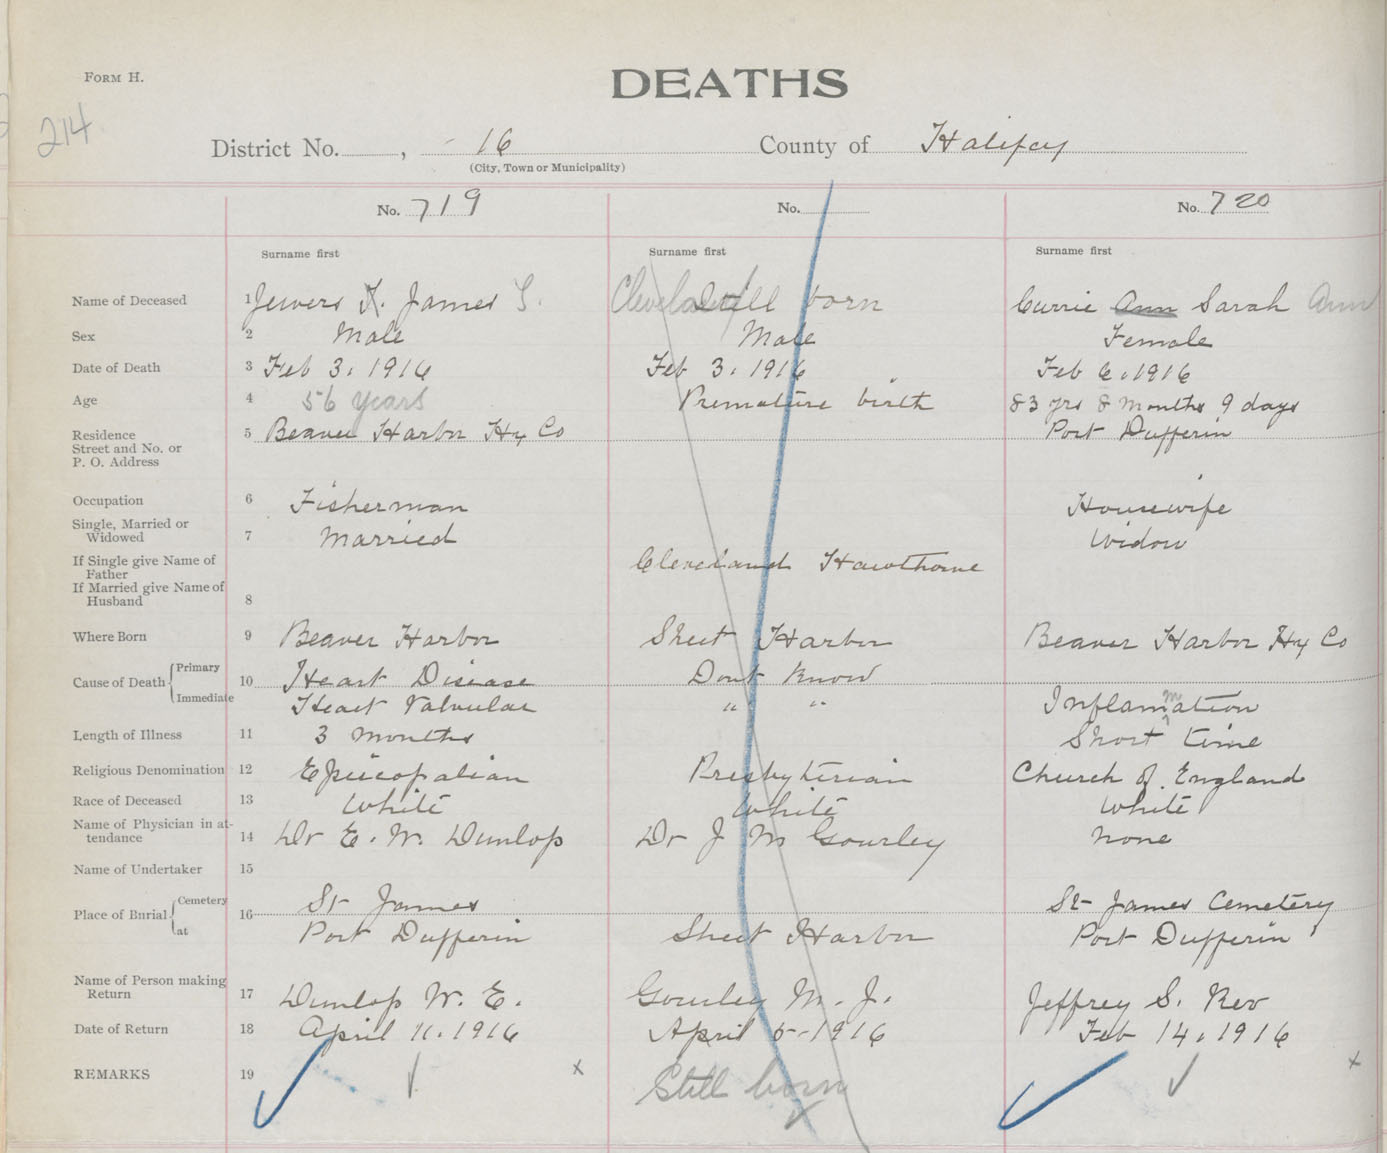 FORM H.
DEATHS
214
District No. , 16 County of Halifax
(City, Town or Municipality)
No. 719 No. No. 720
Surname first Surname first Surname first
Name of Deceased 1 Jewers James Still born Currie Ann Sarah Ann
Sex 2 Male Male Female
Date of Death 3 Feb 3. 1916 Feb 3. 1916 Feb 6. 1916
Age 4 56 years Premature birth 83 yrs 8 months 9 days
Residence 5 Beaver Harbor Hx Co Port Dufferin
Street and No. or
P. O. Address
Occupation 6 Fisherman Housewife
Single, Married or
Widowed 7 Married Widow
If Single give Name of Cleveland Hawthorne
Father
If Married give Name of
Husband 8
Where Born 9 Beaver Harbor Sheet Harbor Beaver Harbor Hx Co
Cause of Death Primary 10 Heart Disease Dont Know
Immediate Heart Valvular " " Inflammation
Length of Illness 11 3 months Short time
Religious Denomination 12 Episcopalian Presbyterian Church of England
Race of Deceased 13 White White White
Name of Physician in at-
tendance 14 Dr E. W. Dunlop Dr J M Gourley none
Name of Undertaker 15
Place of Burial Cemetery 16 St James St James Cemetery
at Port Dufferin Sheet Harbor Port Dufferin
Name of Person making
Return 17 Dunlop W. E. Gourley M. J. Jeffrey S. Rev
Date of Return 18 April 11. 1916 April 5-1916 Feb 14. 1916
REMARKS 19 x Still born x